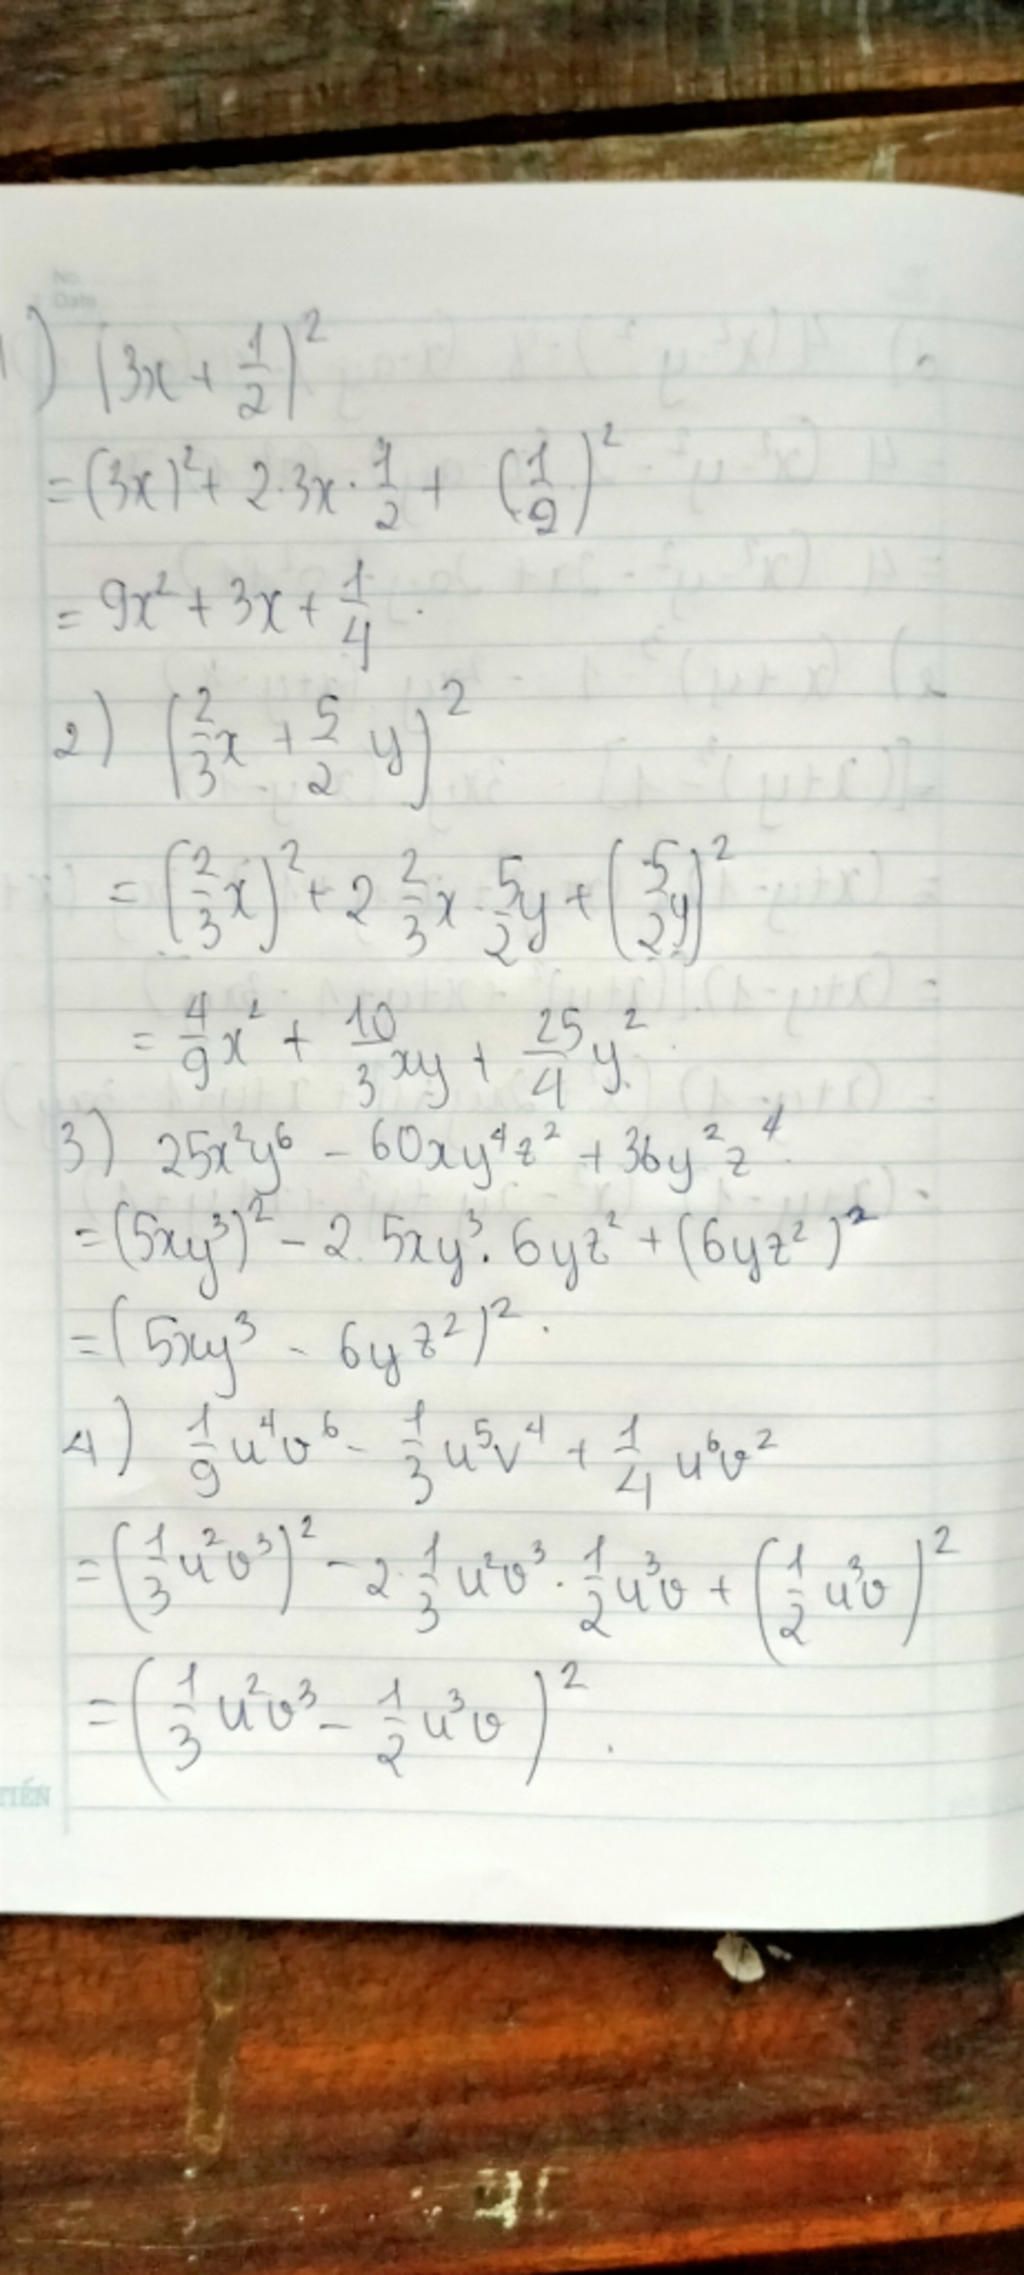 No.
Date
1) (3x + 1/2)²
= (3x)² + 2.3x . 1/2 + (1/2)²
= 9x² + 3x + 1/4 .
2) (2/3 x + 5/2 y)²
= (2/3 x)² + 2 2/3 x . 5/2 y + (5/2 y)²
= 4/9 x² + 10/3 xy + 25/4 y².
3) 25x²y⁶ - 60xy⁴z² + 36y²z⁴
= (5xy³)² - 2. 5xy³. 6yz² + (6yz²)²
= (5xy³ - 6yz²)² .
4) 1/9 u⁴v⁶ - 1/3 u⁵v⁴ + 1/4 u⁶v²
= (1/3 u²v³)² - 2. 1/3 u²v³ . 1/2 u³v + (1/2 u³v)²
= (1/3 u²v³ - 1/2 u³v)² .
TIẾN